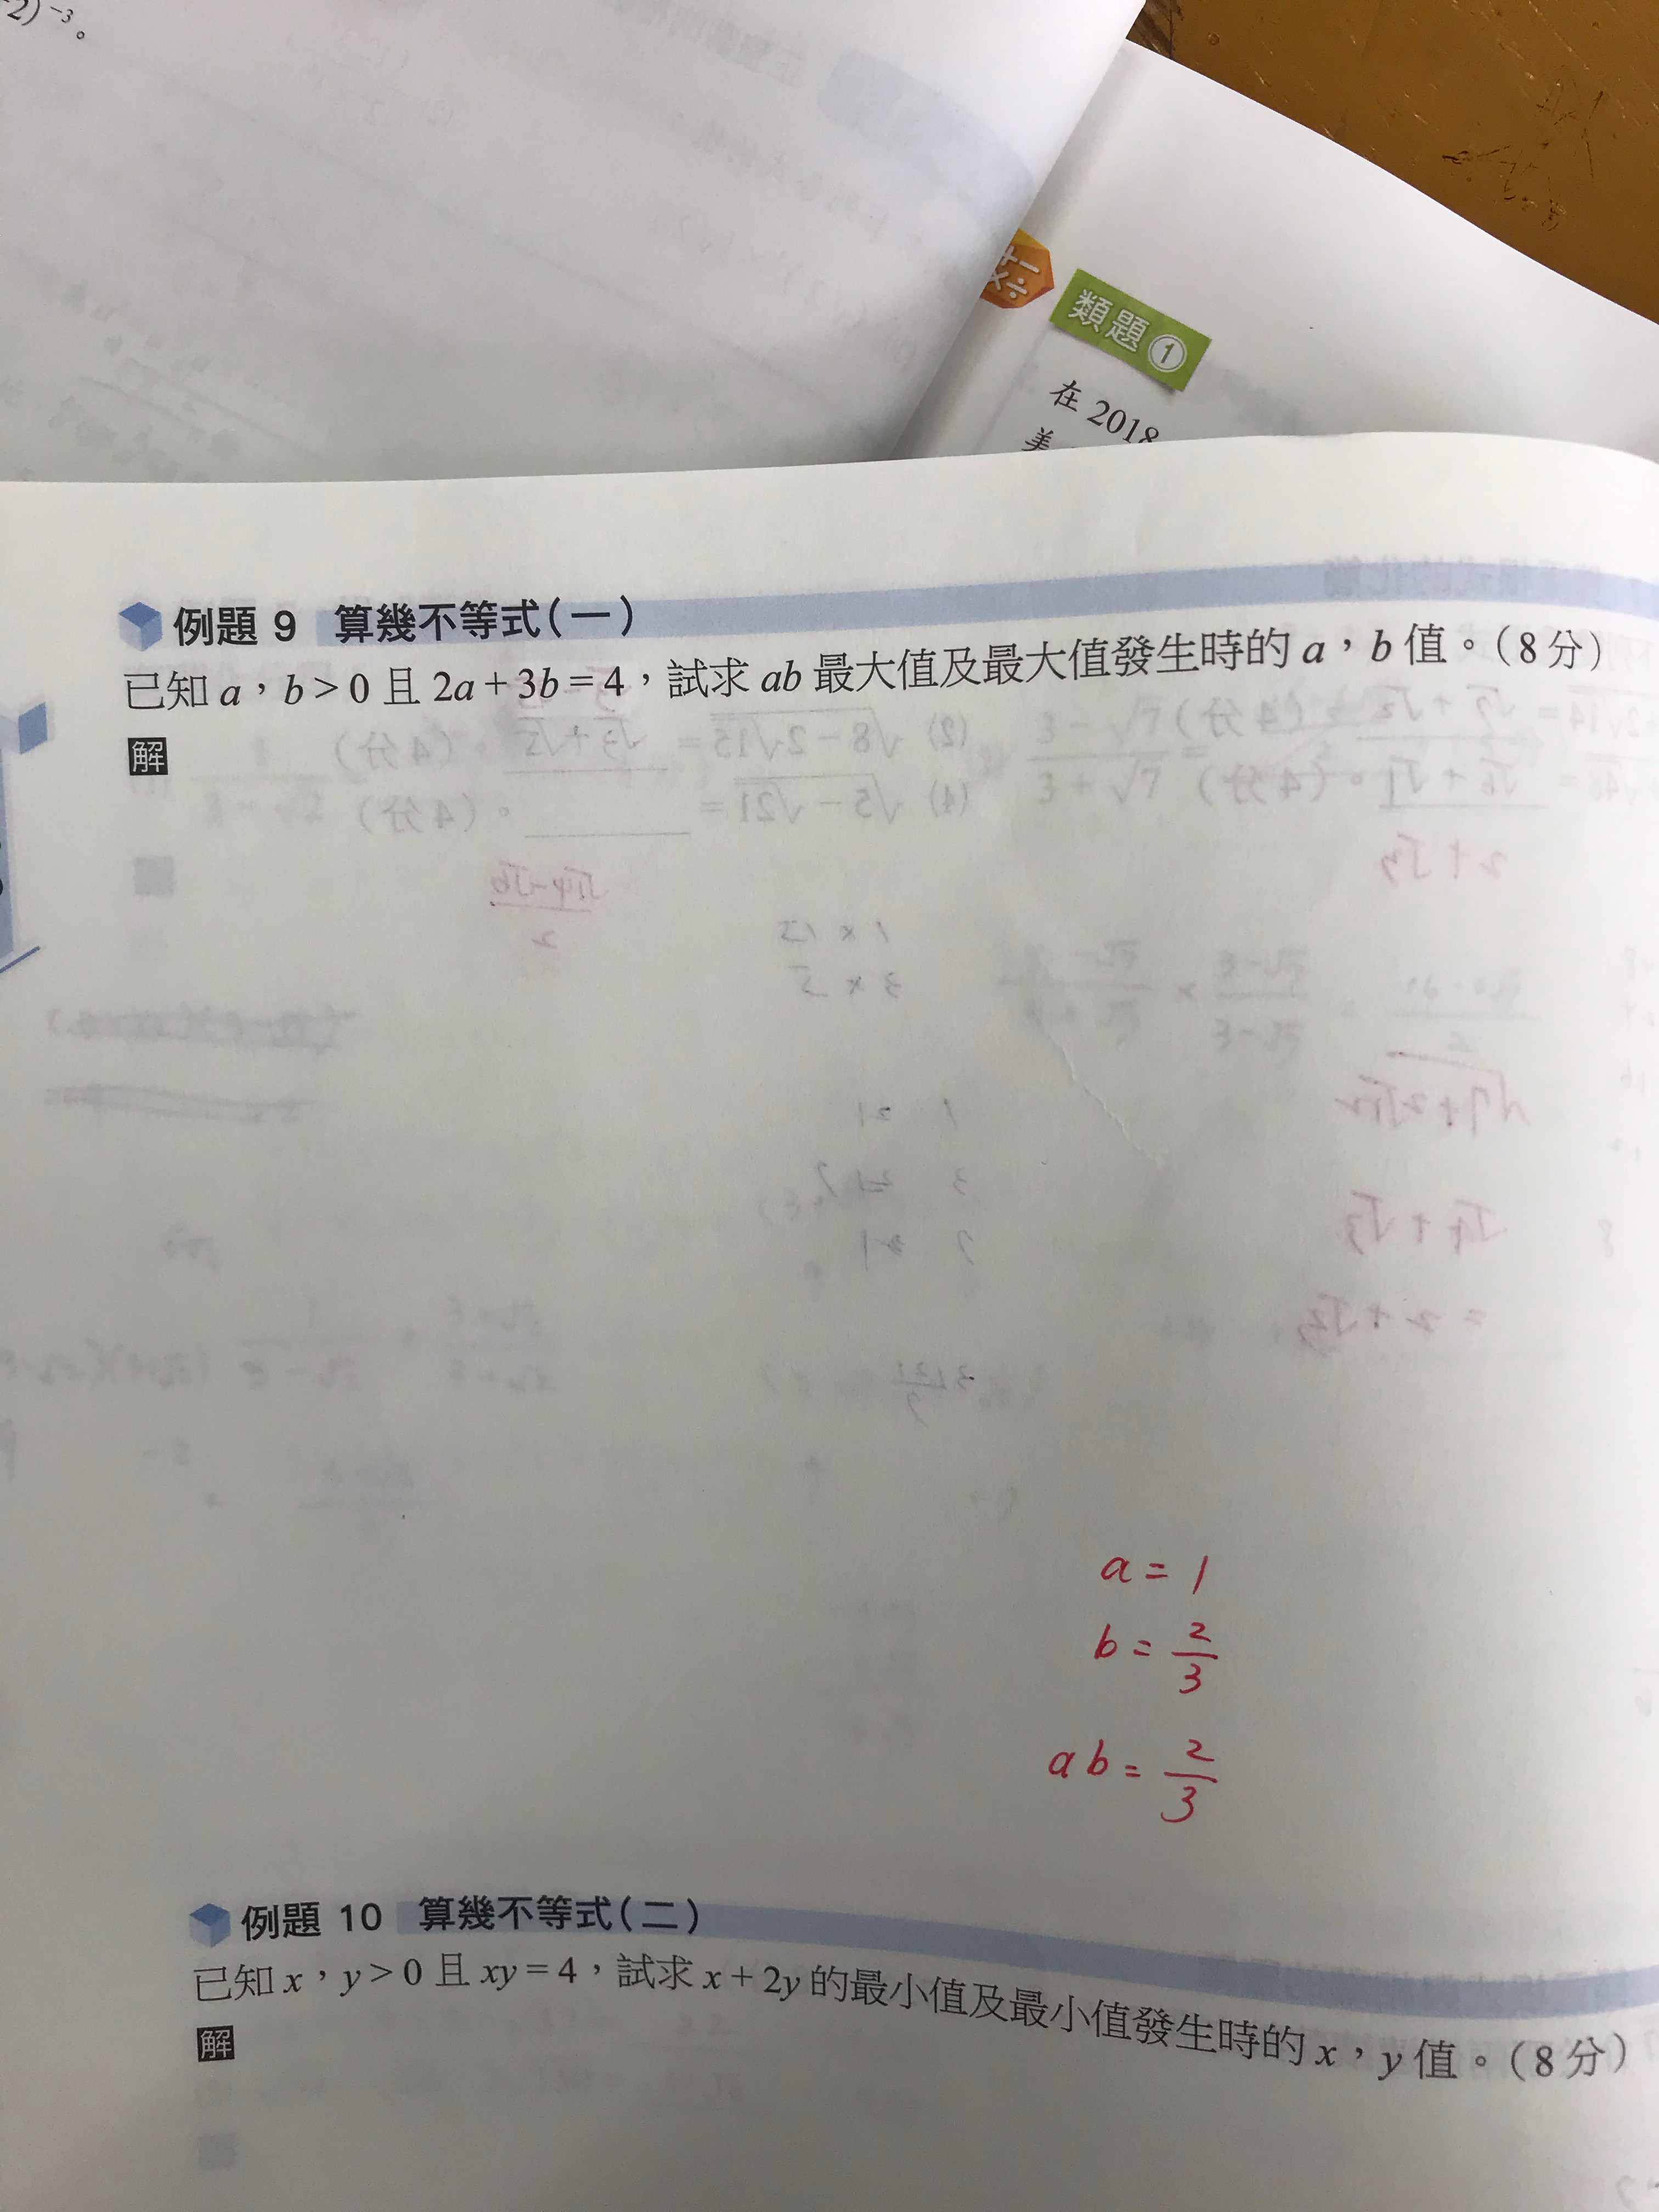 2)⁻³。
類題 1
在 2018
美
例題 9 算幾不等式(一)
已知 a，b > 0 且 2a + 3b = 4，試求 ab 最大值及最大值發生時的 a，b 值。(8 分)
解
a = 1
b = 2/3
ab = 2/3
例題 10 算幾不等式(二)
已知 x，y > 0 且 xy = 4，試求 x + 2y 的最小值及最小值發生時的 x，y 值。(8 分)
解